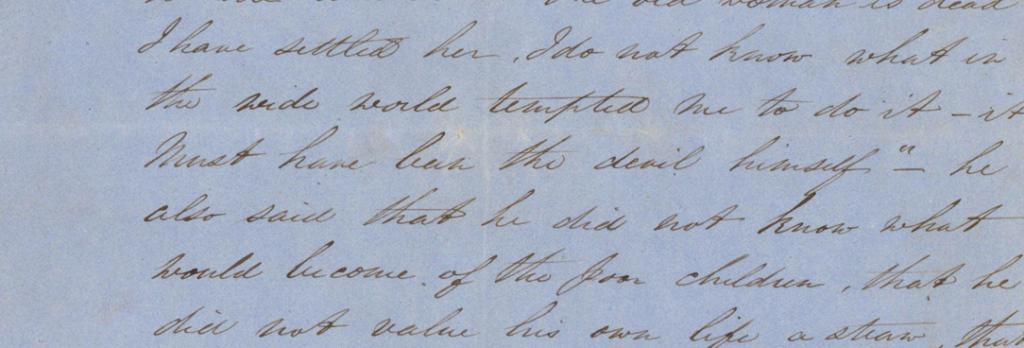 old woman is dead
I have settled her, I do not know what in
the wide world tempted me to do it - it
Must have been the devil himself" - he
also said that he did not know what
would become of the poor children, that he
did not value his own life a straw, that